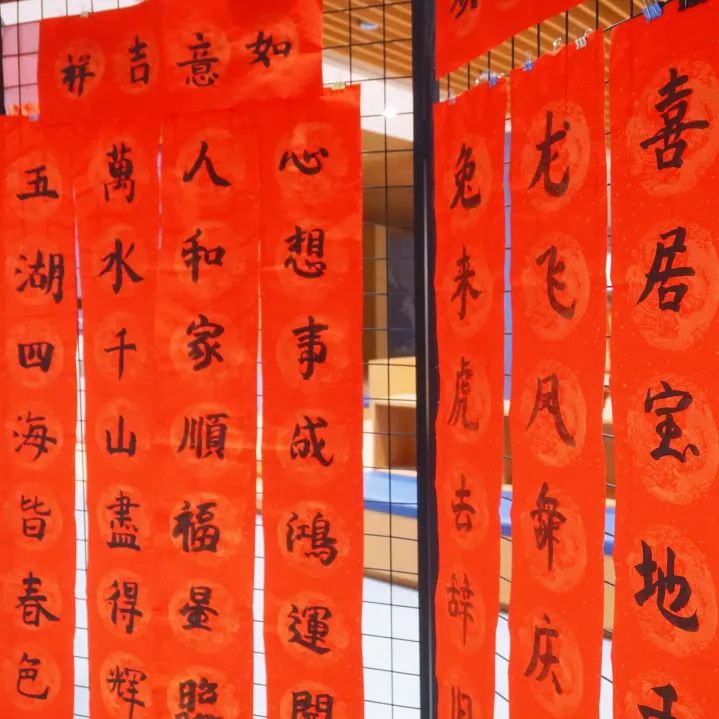 如意吉祥
喜居宝地
龙飞凤舞庆
兔来虎去辞旧
心想事成鴻運開
人和家順福星照
萬水千山盡得輝
五湖四海皆春色